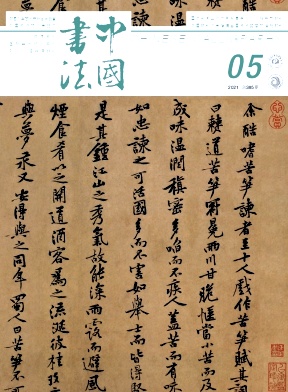 中國書法
05
2021
余酷嗜苦笋諫者至十人戲作苦笋賦其詞
曰僰道苦笋冠冕兩川甘脆愜當小苦而反
成味温潤縝密多啗而不疾人蓋苦而有味
如忠諫之可活國多而不害如舉士而皆得賢
是其鍾江山之秀氣故能深雨露而避風
煙食肴以之開道酒客為之流涎彼桂
與夢永又安得與之同年蜀人曰苦笋不可